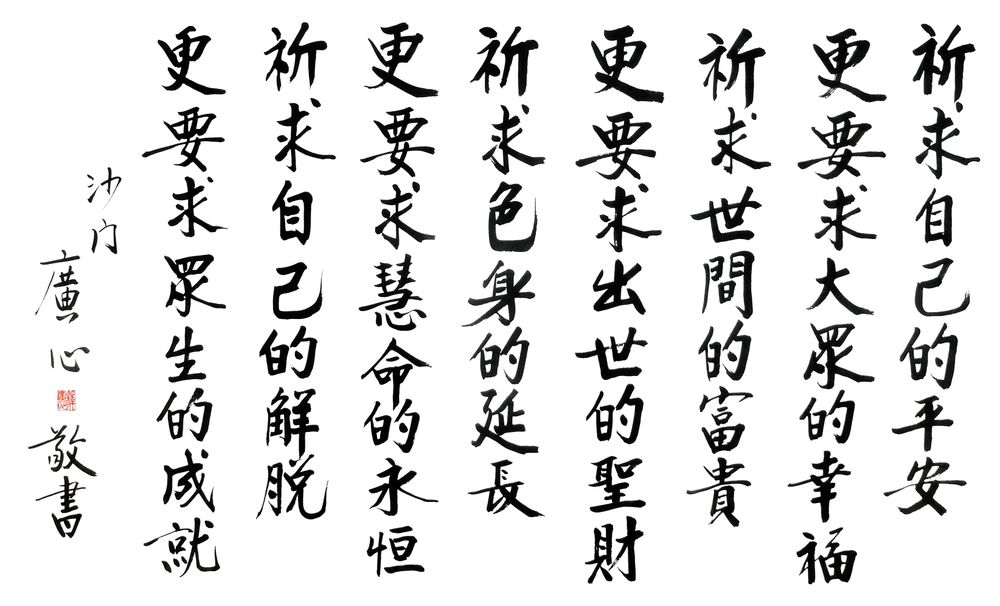 祈求自己的平安
更要求大眾的幸福
祈求世間的富貴
更要求出世的聖財
祈求色身的延長
更要求慧命的永恒
祈求自己的解脱
更要求眾生的成就
沙门
廣心
敬書